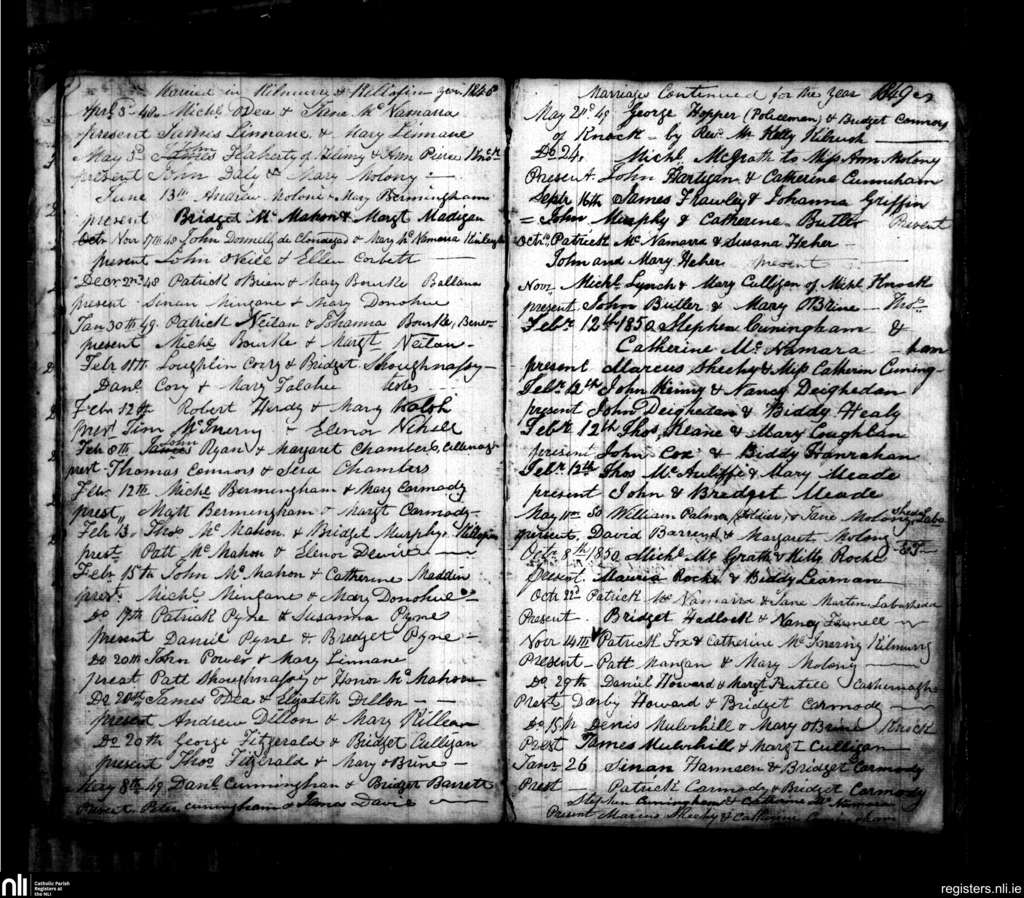 Married in Kilmurry & Killofin year 1848
April 5th 48 Michl ODea & Irene Mc Namara
present James Linnane & Mary Linnane
May 3d John James Flaherty of Glinny & Ann Pierce Knock
present John Daly & Mary Molony
June 13th Andrew Molony & Mary Bermingham
present Bridget Mc Mahon & Margt Madigan
Octr Novr 17th 48 John Donnelly de Clondegad & Mary Mc Namara
present John Neill & Ellen Corbett
Decr 2nd 48 Patrick OBrien & Mary Bourke Ballana
present Sinan Mingane & Mary Donohue
Jan 30th 49 Patrick Neilan & Johanna Bourke,
present Michl Bourke & Margt Neilan
Febr 11th Loughlin Cory & Bridget Shoughnassy
Danl Cory & Mary Talabee
Febr 12th Robert Herdy & Mary Walsh
Prest Tim McInerny & Elenor Nihell
Feb 8th John James Ryan & Margaret Chambers,
prest Thomas Connors & Sera Chambers
Febr 12th Michl Bermingham & Mary Carmody
prest, Matt Bermingham & Margt Carmody
Feb 13. Thos Mc Mahon & Bridget Murphy Killofin
prest Patt Mc Mahon & Elenor Devire
Febr 15th John Mc Mahon & Catherine Maddin
prest Michl Mingane & Mary Donohue
Do 17th Patrick Pyne & Susanna Pyne
present Daniel Pyne & Bredget Pyne
Do 20th John Power & Mary Linnane
preat Patt Shoughnassy & Honor Mc Mahon
Do 20th James ODea & Elizabeth Dillon
present Andrew Dillon & Mary Killean
Do 20th George Fitzgerald & Bridget Culligan
present Thos Fitzgerald & Mary OBrine
May 8th 49 Danl Cunningham & Bridget Barrett
Present Peter Cuningham & James Davie
Marriages Continued for the Year 1849
May 2d 49 George Hopper (Policeman) & Budget Connors
of Knock by Revd Mr Kelly Kilrush
Do 24, Michl McGrath to Miss Ann Molony
Present John Hartigan & Catherine Cunneham
Septr 16th James Frawley & Johanna Griffin
John Murphy & Catherine Butler Present
Octr, Patrick Mc Namarra & Susana Heher
John and Mary Heher present
Novr Michl Lynch & Mary Culligan of Knock
present, John Butler & Mary OBrine
Febr 12th 1850 Stephen Cuningham &
Catherine Mc Namara ham
present Marcus Sheehy & Miss Catherin Cuning-
Febr 12th John Kening & Nancy Deighedan
present John Deighedan & Biddy Healy
Febr 12th Thos Keane & Mary Loughlan
present John Cox & Biddy Hanrahan
Febr 12th Thos McAuliffe & Mary Meade
present John & Bredget Meade
May 11th 50 William Palmer (soldier) & Jane Molony
present, David Barrend & Margaret Molony
Octr 8th 1850 Michl Mc Grath & Kitty Roche
present Mauria Roche & Biddy Learnan
Octr 22d Patrick Mc Namarra & Jane Martin Labasheda
Present Bridget Hedlock & Nancy Finnell
Novr 14th Patrick Fox & Catherine Mc Knerny Kilmurry
Present Patt Mangan & Mary Molony
Do 29th Daniel Howard & Margt Purtell
Prest Darby Howard & Bridget Carmody
Do 15th Denis Mulvihill & Mary OBrine Knock
Prest James Mulvihill & Margt Culligan
Janr 26 Sinan Hannsen & Bridget Carmody
Prest Patrick Carmody & Bridget Carmody
Stephen Cuningham & Catherine Mc Namara
Present Marcus Sheehy & Catherine Cuningham
nli
Catholic Parish
Registers at
the NLI
registers.nli.ie